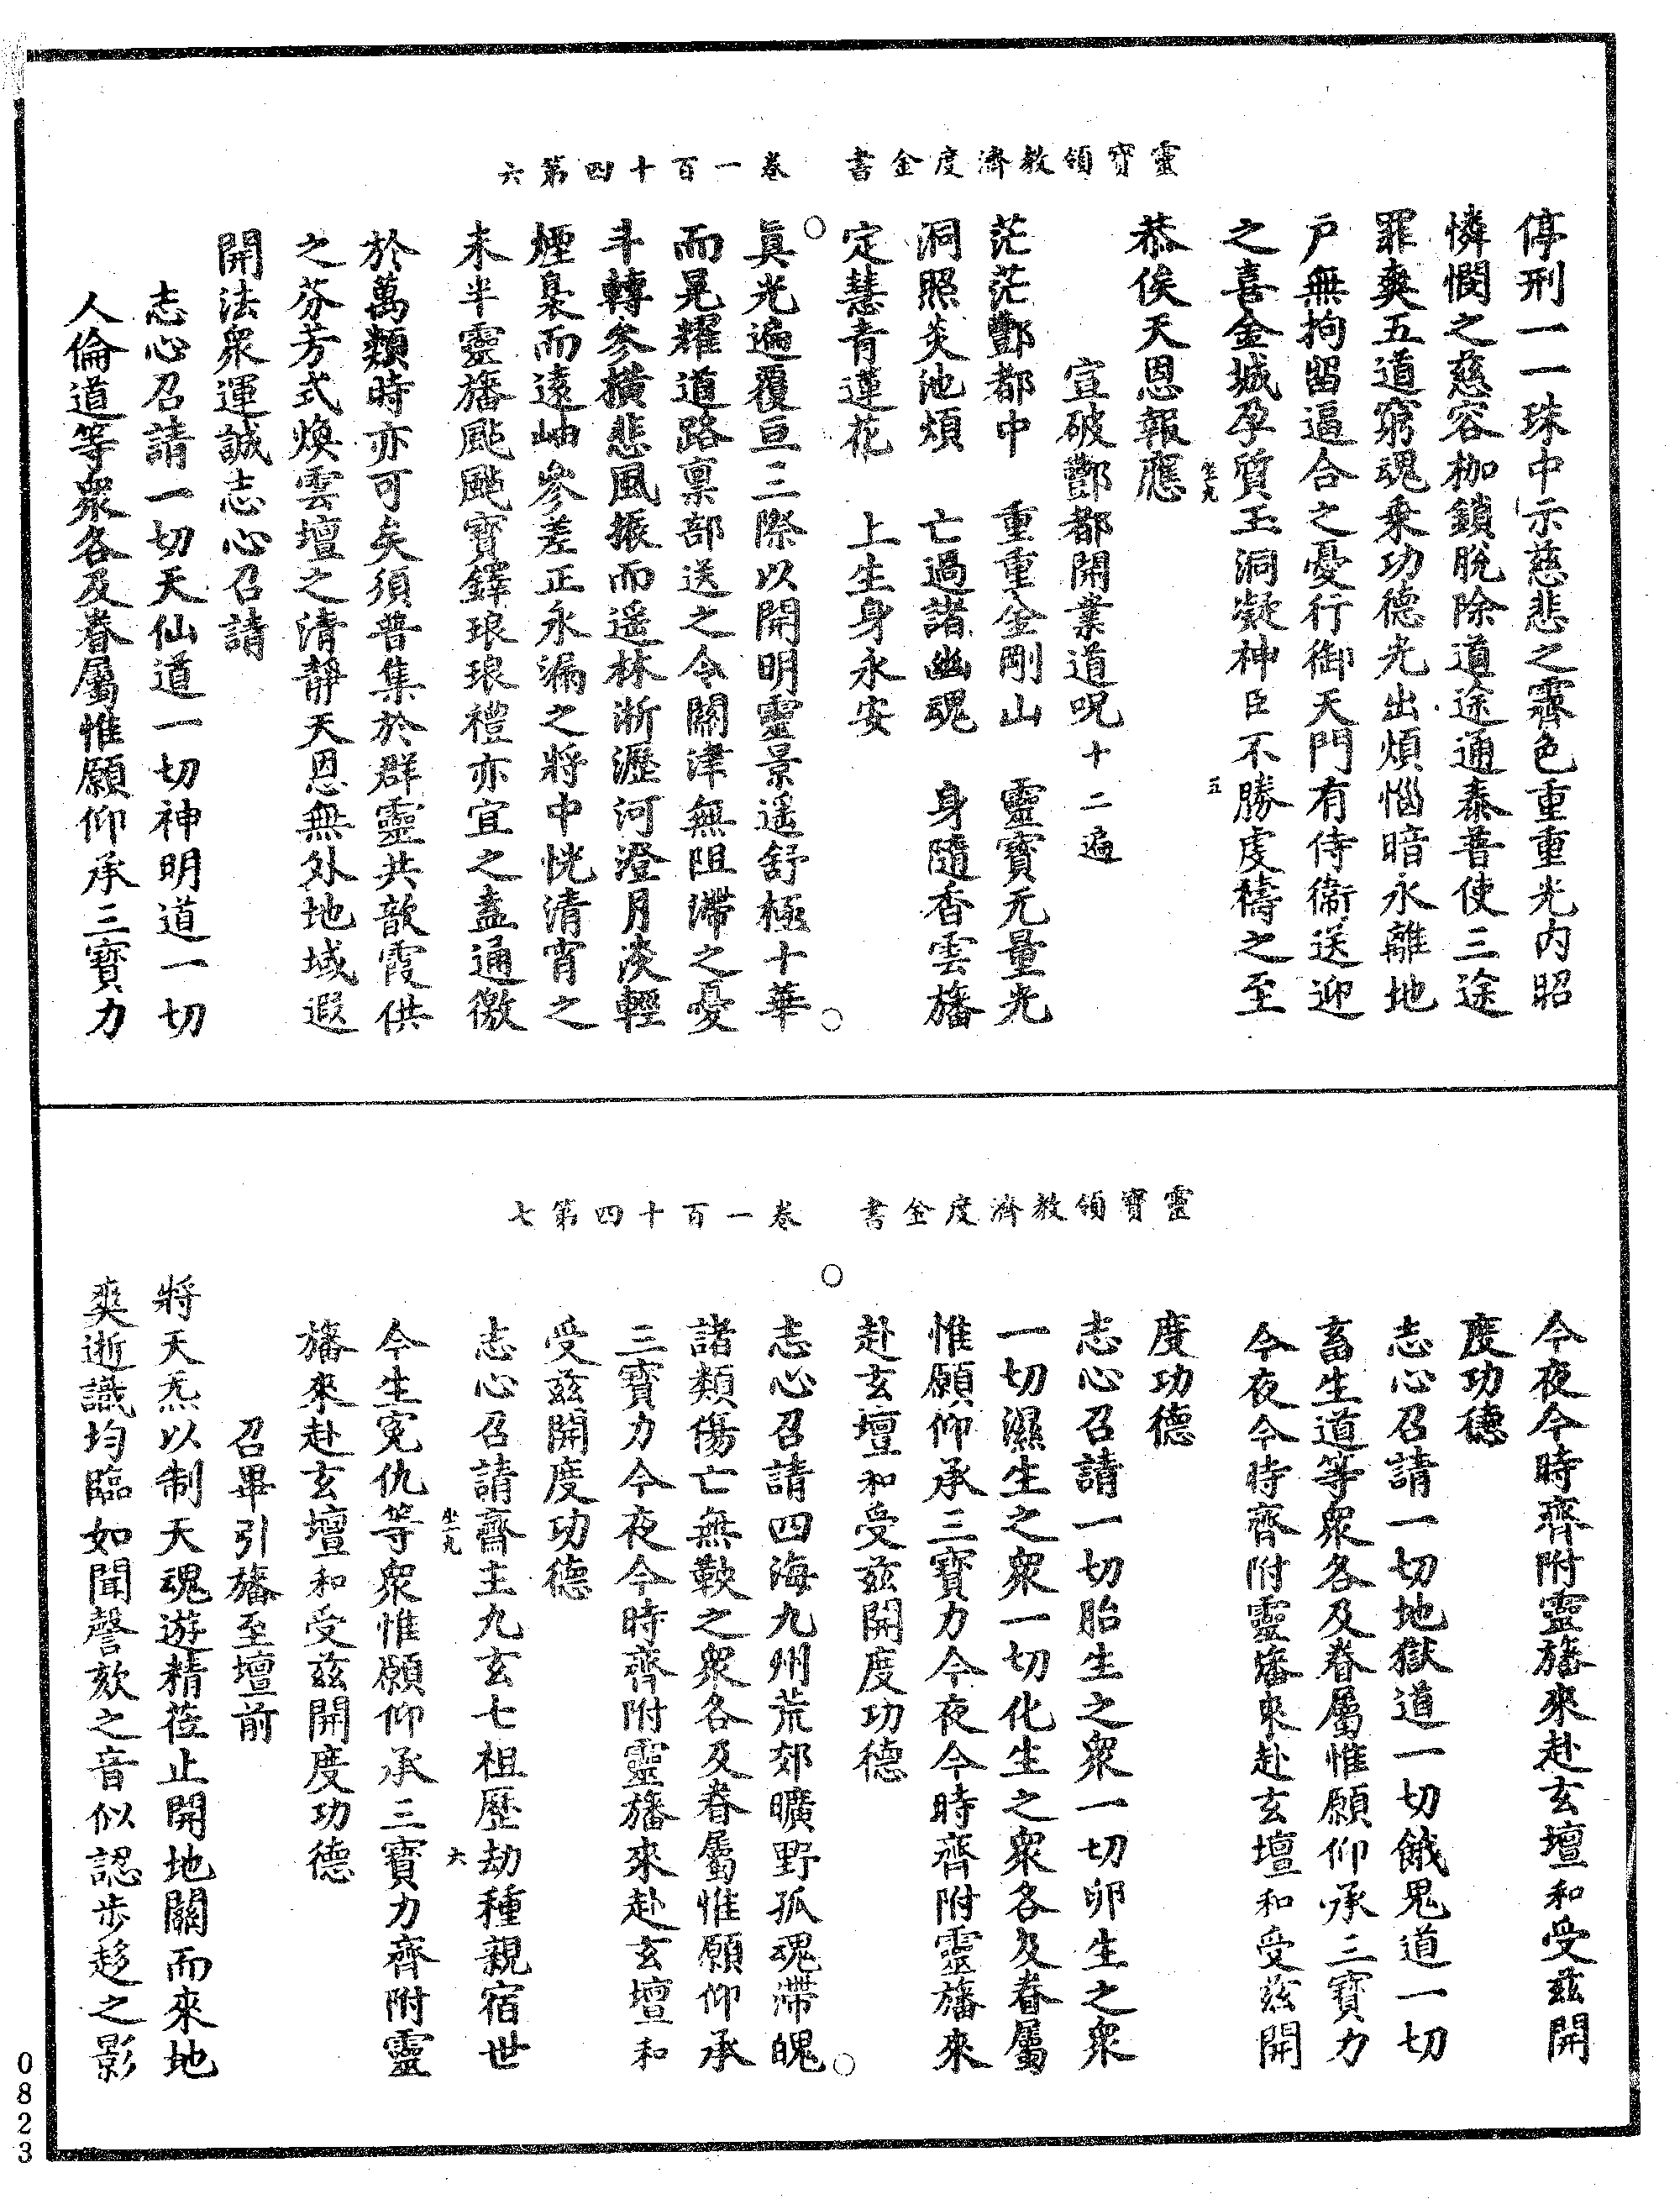 靈寶領教濟度金書　卷一百十四第六
停刑一一珠中示慈悲之霽色重重光内昭
憐憫之慈容枷鎖脫除道途通泰普使三途
罪爽五道窮魂乘功德光出煩惱暗永離地
戶無拘留逼合之憂行御天門有侍衞送迎
之喜金城孕質玉洞凝神臣不勝虔禱之至
恭俟天恩報應
宣破酆都開業道呪十二遍
茫茫酆都中　重重金剛山　靈寶无量光
洞照炎池煩　亡過諸幽魂　身隨香雲旛
定慧青蓮花　上生身永安
眞光遍覆亘三際以開明靈景遥舒極十華
而晃耀道路稟部送之令關津無阻滯之憂
斗轉參橫悲風振而遥林淅瀝河澄月淡輕
煙裊而遠岫參差正永漏之將中恍清宵之
未半靈旛颭颭寶鐸琅琅禮亦宜之盍通徹
於萬類時亦可矣須普集於群靈共歆霞供
之芬芳式煥雲壇之清靜天恩無外地域遐
開法衆運誠志心召請
志心召請一切天仙道一切神明道一切
人倫道等衆各及眷屬惟願仰承三寶力
靈寶領教濟度金書　卷一百十四第七
今夜今時齊附靈旛來赴玄壇和受兹開
度功德
志心召請一切地獄道一切餓鬼道一切
畜生道等衆各及眷屬惟願仰承三寶力
今夜今時齊附靈旛來赴玄壇和受兹開
度功德
志心召請一切胎生之衆一切卵生之衆
一切濕生之衆一切化生之衆各及眷屬
惟願仰承三寶力今夜今時齊附靈旛來
赴玄壇和受兹開度功德
志心召請四海九州荒郊曠野孤魂滯魄
諸類傷亡無鞅之衆各及眷屬惟願仰承
三寶力今夜今時齊附靈旛來赴玄壇和
受兹開度功德
志心召請齋主九玄七祖歷劫種親宿世
今生冤仇等衆惟願仰承三寶力齊附靈
旛來赴玄壇和受兹開度功德
召畢引旛至壇前
將天炁以制天魂遊精莅止開地關而來地
爽逝識均臨如聞謦欬之音似認步趍之影
0823